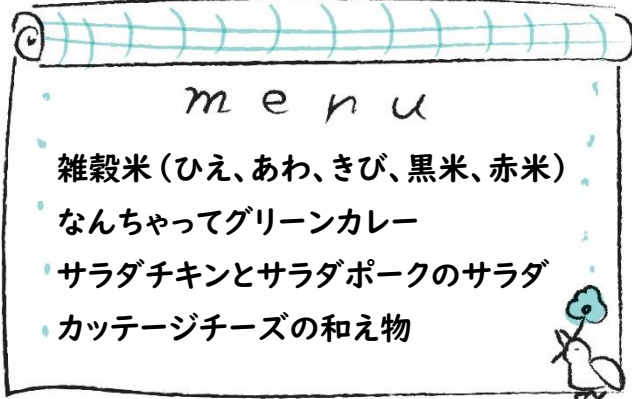 menu
雑穀米(ひえ、あわ、きび、黒米、赤米)
なんちゃってグリーンカレー
サラダチキンとサラダポークのサラダ
カッテージチーズの和え物